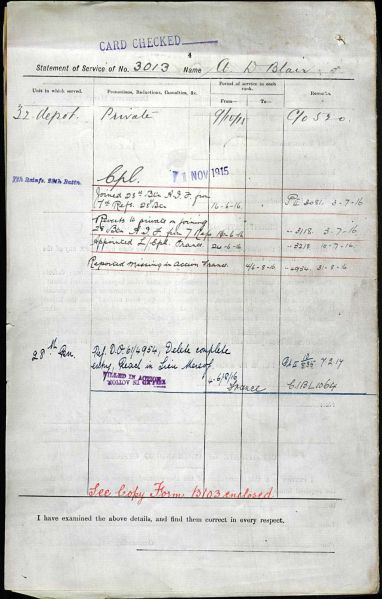 CARD CHECKED
4
Statement of Service of No. 3013 Name A. D Blair
Unit in which served.
Promotions, Reductions, Casualties, &c.
Period of service in each rank.
From—
To—
Remarks.
32 depot. Private 9/10/15 C/o S 2 0.
Cpl. 1 NOV 1915
7th Reinfs. 28th Battn.
Joined 28th Bn A.I.F. from
7th Refs. 28 Bn 16-6-16 3081. 3-7-16
Reverts to private on joining
28 Bn A.I.F. from 7 Refs 16-6-16 3118. 3-7-16
Appointed L/Cpl. France. 24-6-16 3218 10-7-16
Reported missing in action France. 4/6-8-16 4954. 31-8-16
28th Bn. Ref. D.O. 61/4954, Delete complete
entry, React in Lieu thereof. 7 2 17
KILLED IN ACTION 4-6/8/16
France
See Copy Form B103 enclosed.
I have examined the above details, and find them correct in every respect.